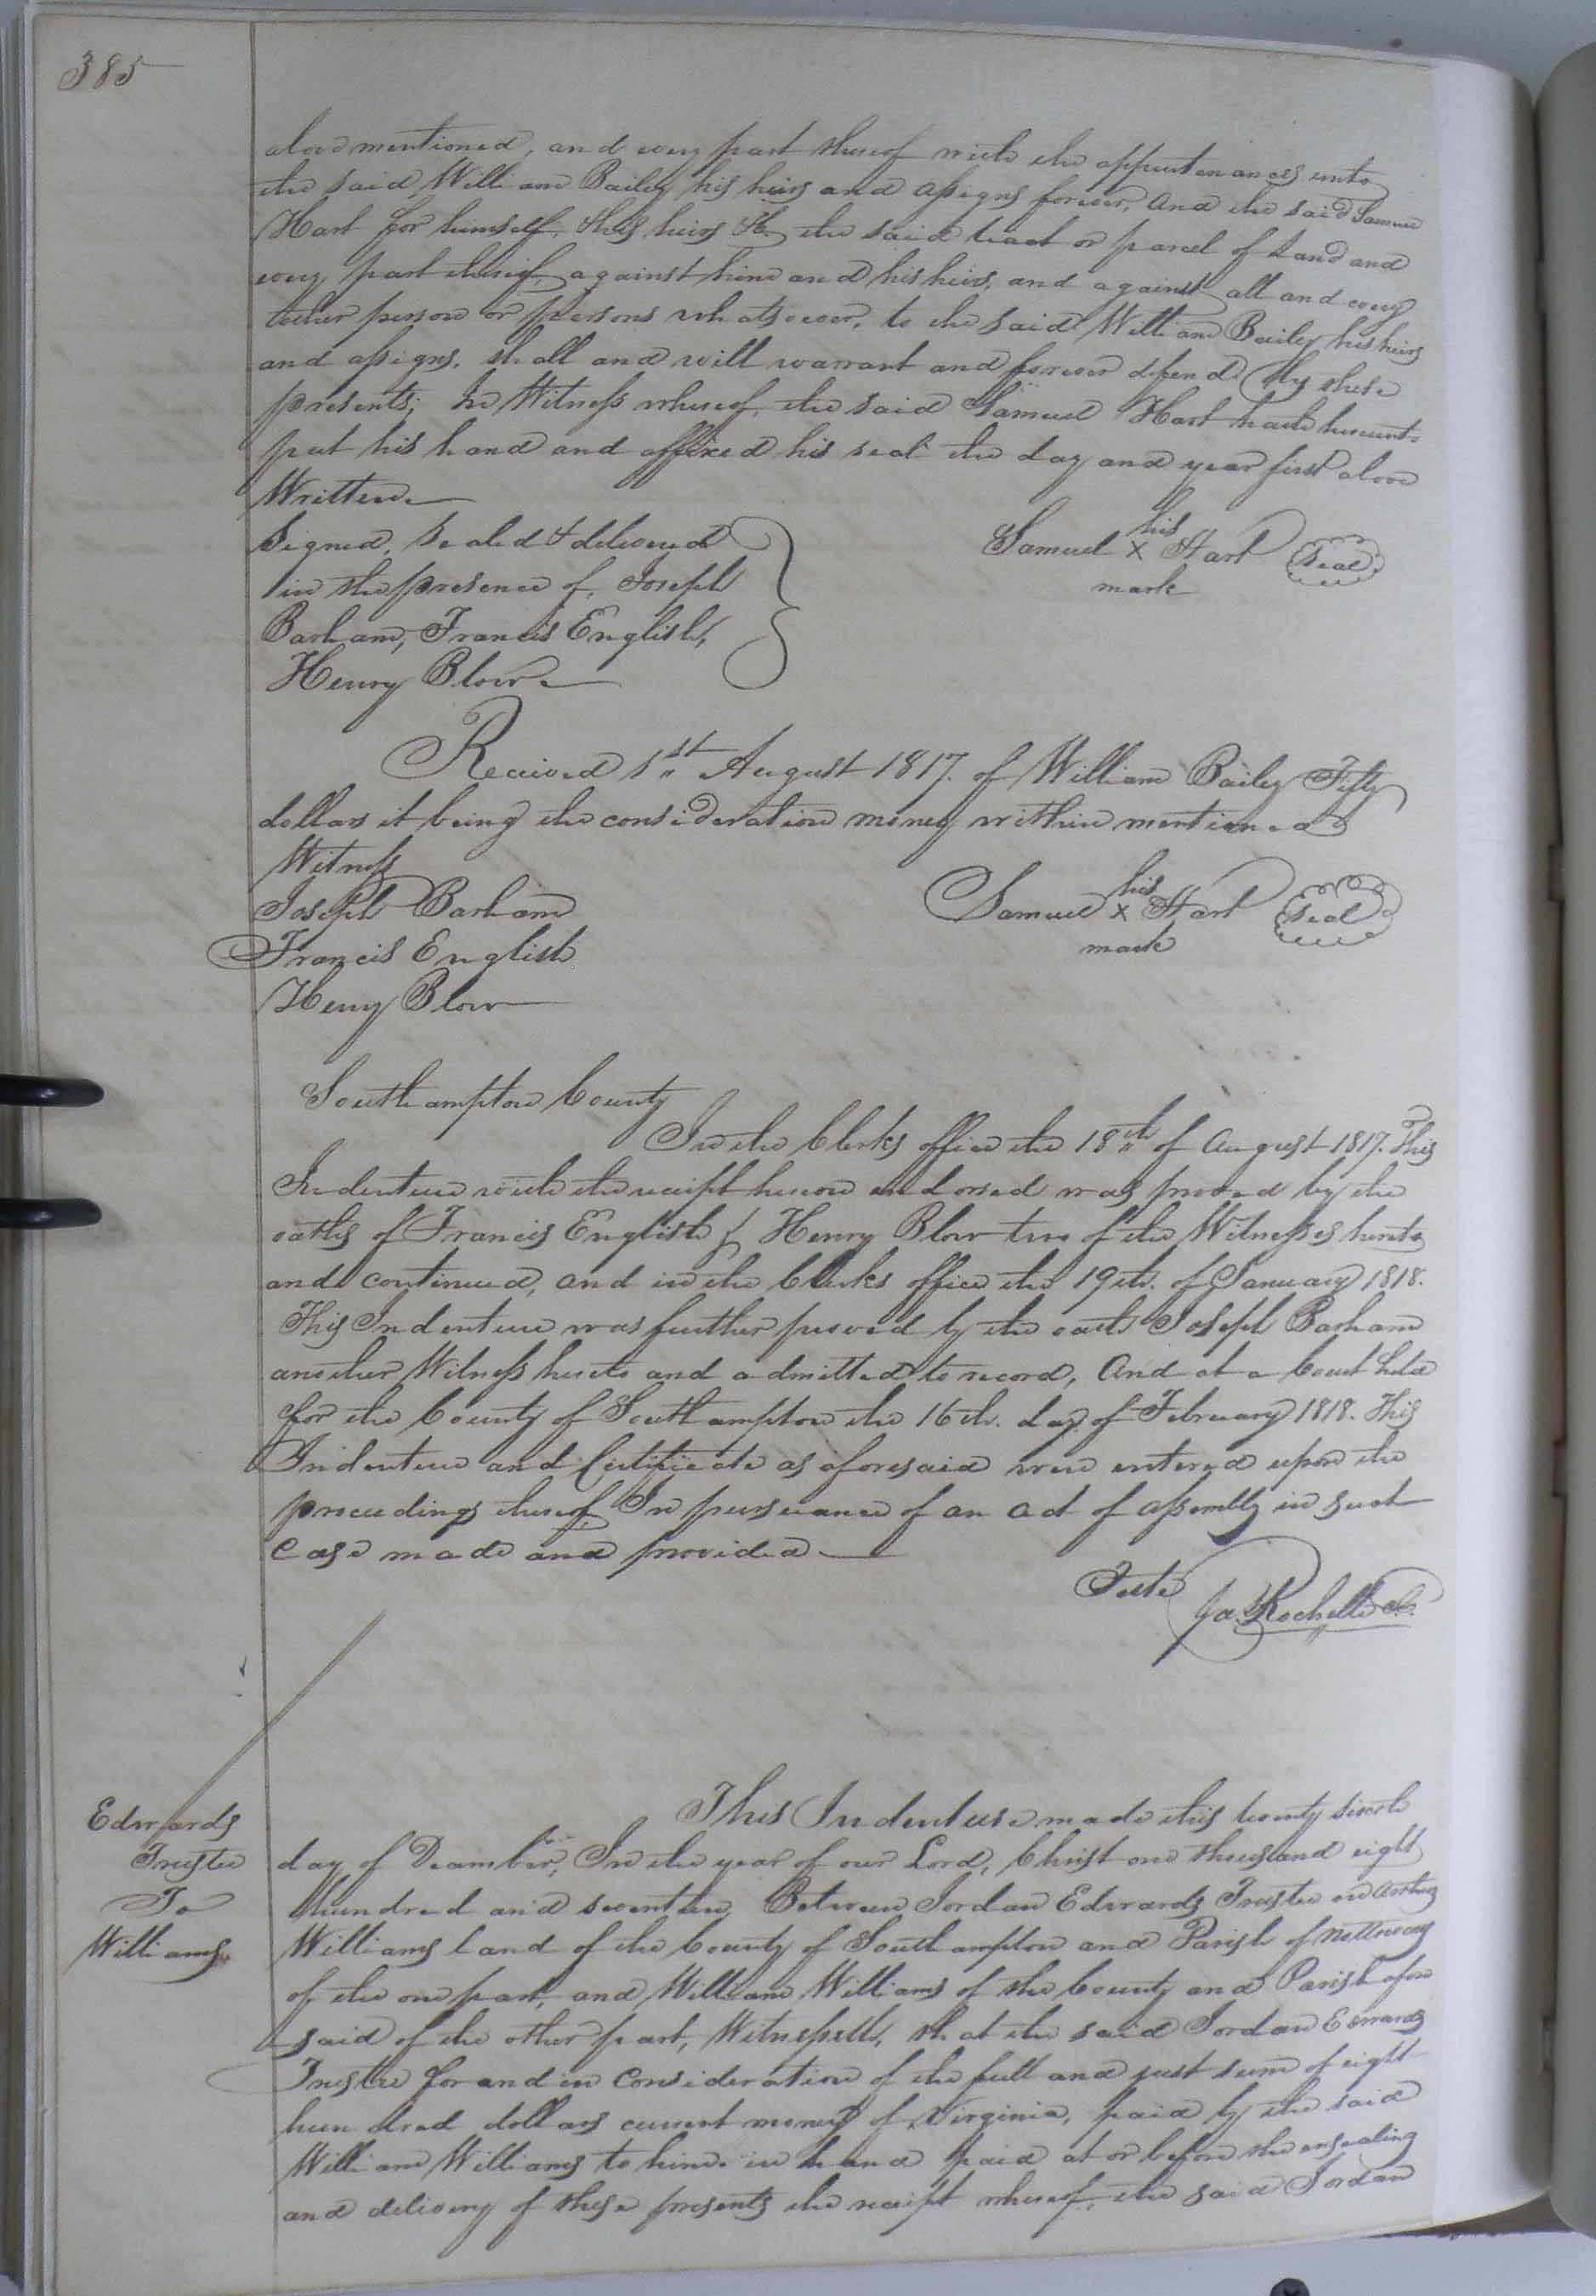 385
above mentioned, and every part thereof with the appurtenances unto
the said William Bailey his heirs and assigns forever, And the said Samuel
Hart for himself, & his heirs &c. the said tract or parcel of Land and
every part thereof, against him and his heirs, and against all and every
other person or persons whatsoever, to the said William Bailey his heirs
and assigns, shall and will warrant and forever defend by these
presents; In Witness whereof, the said Samuel Hart hath hereunto
put his hand and affixed his seal the day and year first above
Written.
Signed, Sealed & delivered
in the presence of, Joseph
Barham, Francis English,
Henry Blow
his
Samuel x Hart Seal
mark
Received 1st August 1817. of William Bailey Fifty
dollars it being the consideration money within mentioned
Witness
Joseph Barham
Francis English
Henry Blow
his
Samuel x Hart Seal
mark
Southampton County
In the Clerks office the 18th of August 1817. This
Indenture with the receipt hereon endorsed was proved by the
oaths of Francis English & Henry Blow two of the Witnesses hereto
and continued, and in the Clerks office the 19th. of January 1818.
This Indenture was further proved by the oath Joseph Barham
another Witness hereto and admitted to record, And at a Court held
for the County of Southampton the 16th. day of February 1818. This
Indenture and Certificate as aforesaid were entered upon the
proceedings thereof, In pursuance of an act of assembly in such
Case made and provided
Teste
Ja. Rochelle C.
Edwards
Trustee
To
Williams
This Indenture made this twenty sixth
day of December, In the year of our Lord, Christ one thousand eight
hundred and seventeen, Between Jordan Edwards Trustee on
Williams land of the County of Southampton and Parish of Nottoway
of the one part, and William Williams of the County and Parish afore
said of the other part, Witnesseth, that the said Jordan Edwards
Trustee for and in Consideration of the full and just sum of eight
hundred dollars current money of Virginia, paid by the said
William Williams to him in hand paid at or before the ensealing
and delivery of these presents the receipt whereof, the said Jordan